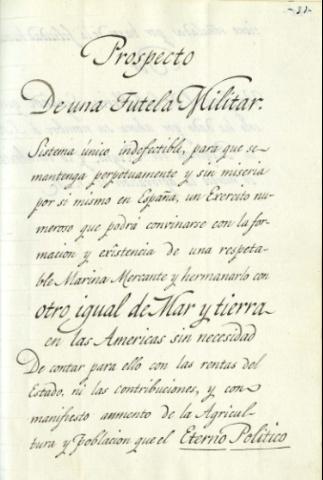 -21-
Prospecto
De una Tutela Militar.
Sistema único indefectible, para que se
mantenga perpetuamente y sin miseria
por si mismo en España, un Exercito nu-
meroso que podrá convinarse con la for-
macion y existencia de una respeta-
ble Marina Mercante y hermanarlo con
otro igual de Mar y tierra
en las Americas sin necesidad
De contar para ello con las rentas del
Estado, ni las contribuciones, y con
manifiesto aumento de la Agricul-
tura y Poblacion que el Eterno Politico